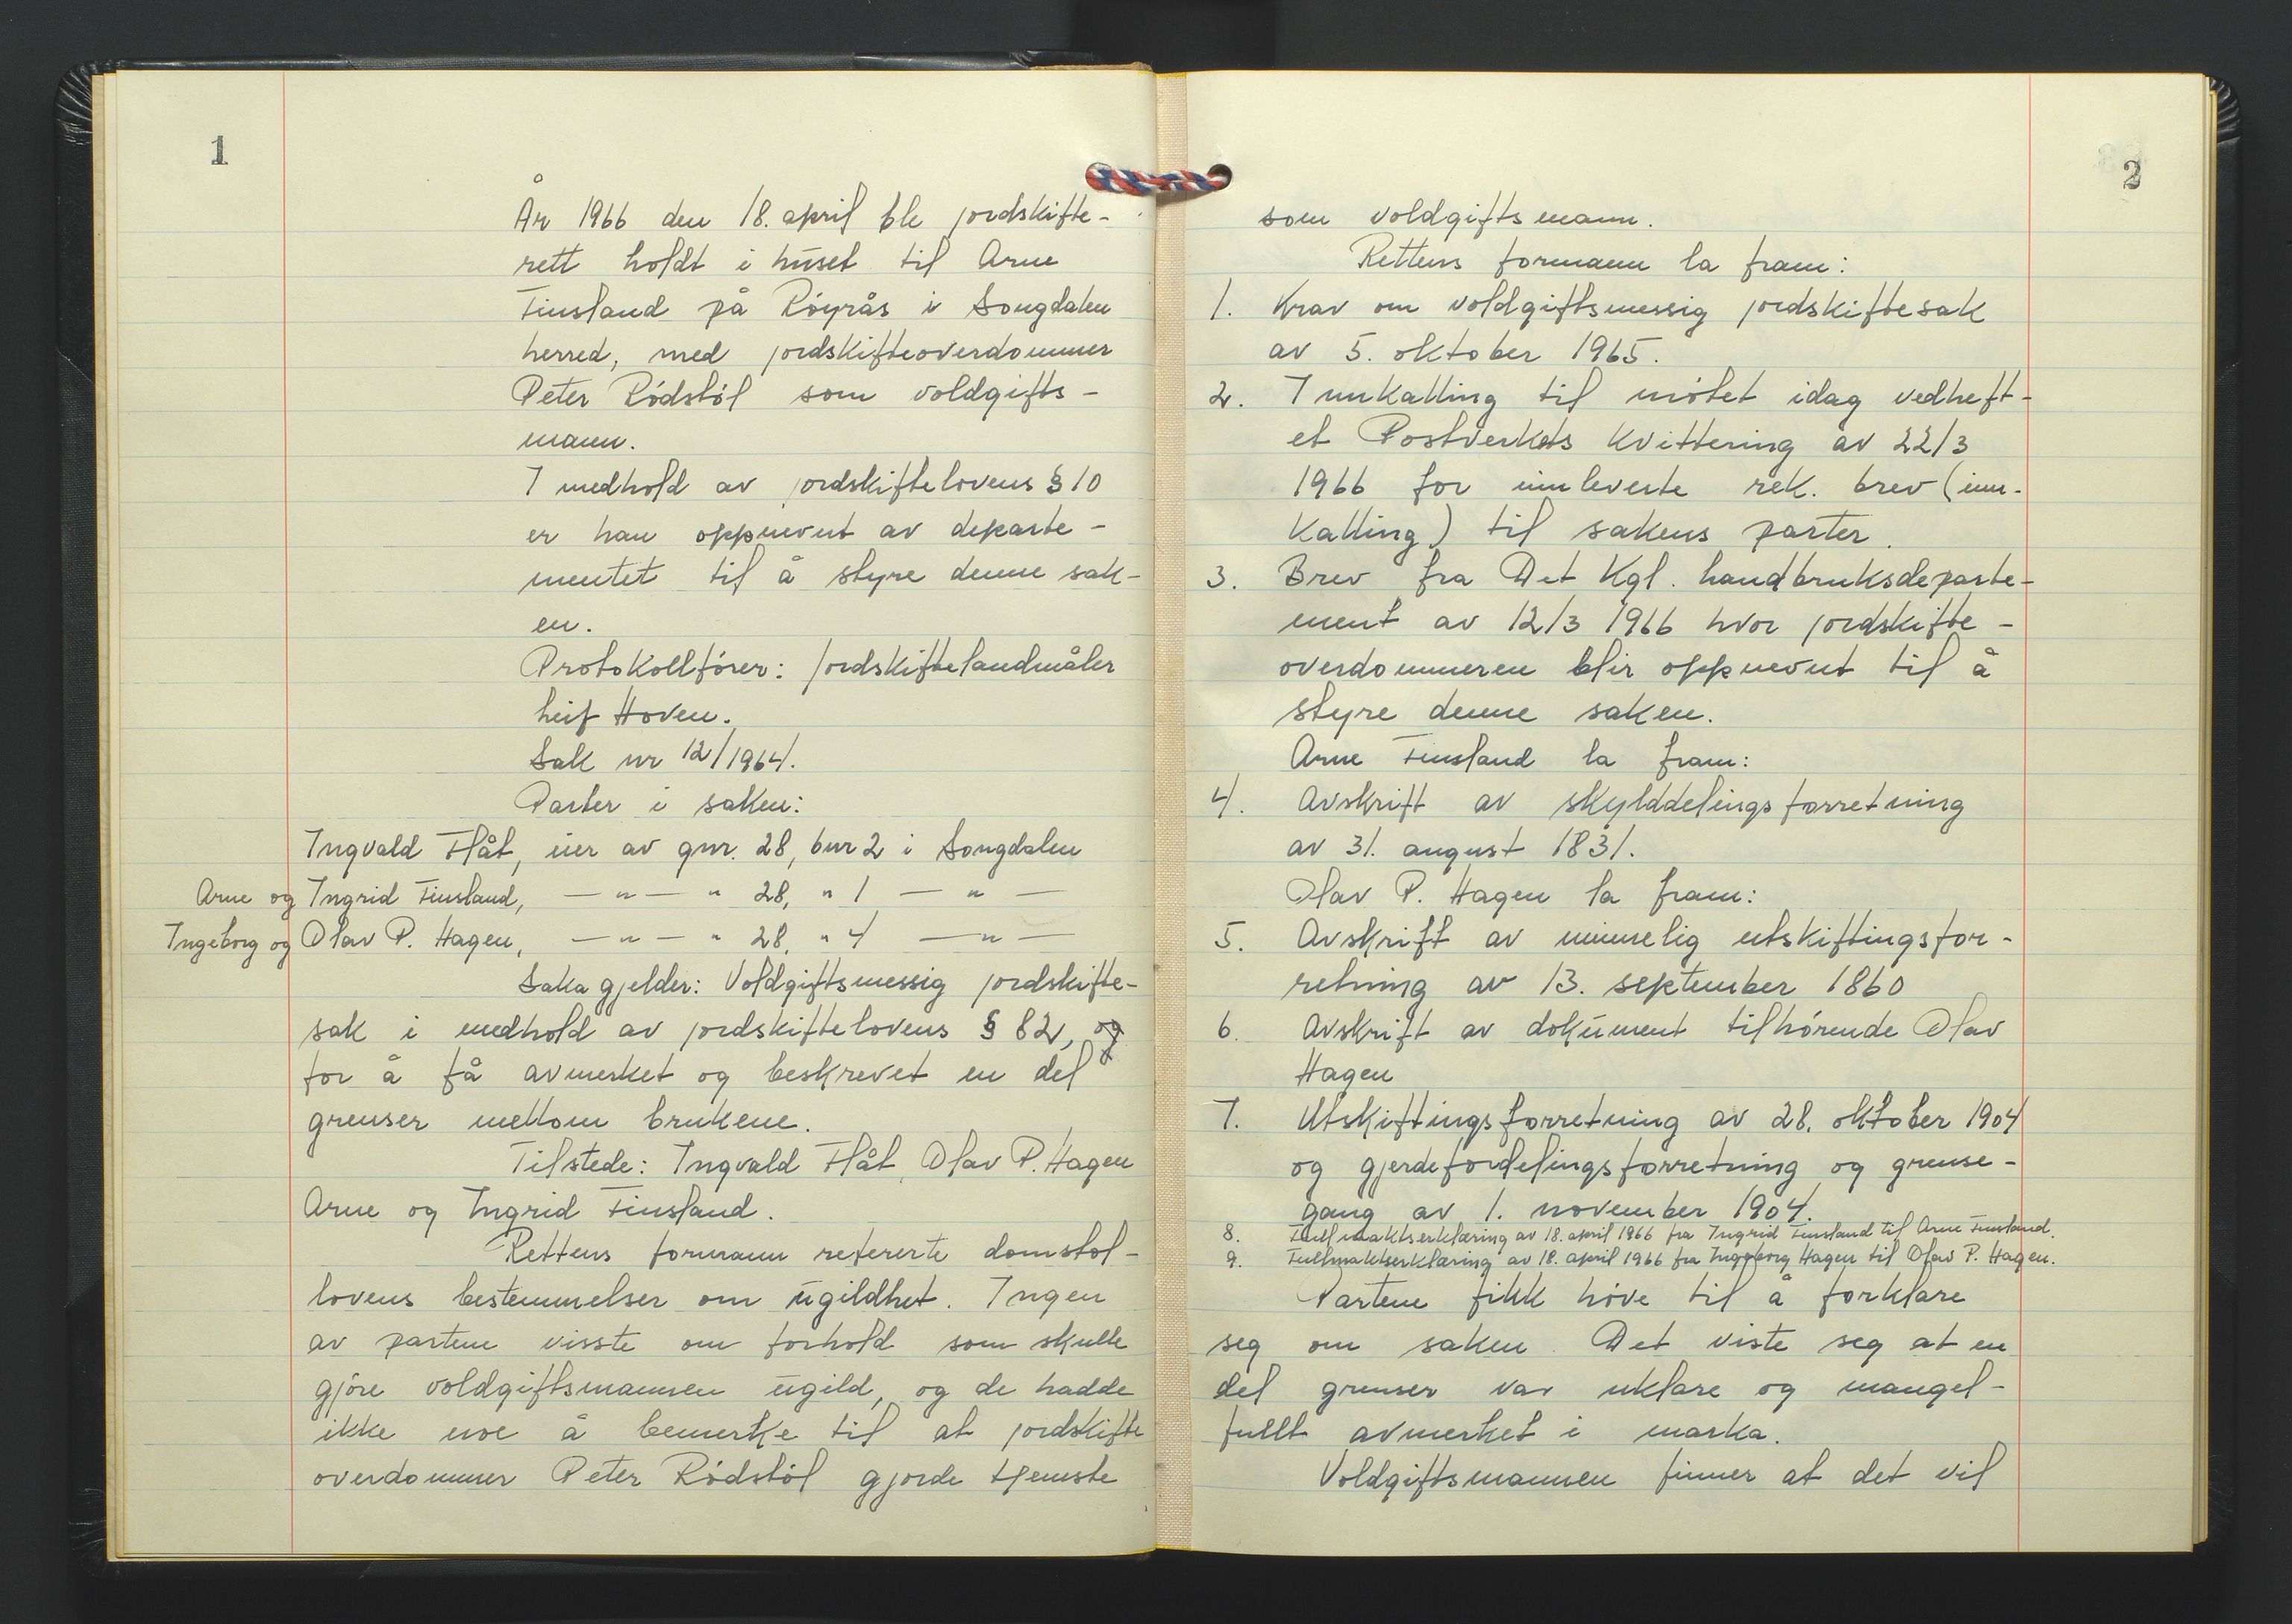 1
År 1966 den 18. april ble jordskifte-
rett holdt i huset til Arne
Finsland på Røyrås i Songdalen
herred, med jordskifteoverdommer
Peter Rødstøl som voldgifts-
mann.
I medhold av jordskiftelovens § 10
er han oppnevnt av departe-
mentet til å styre denne sak-
en.
Protokollfører: jordskiftelandmåler
Leif Hoven.
Sak nr 12/1964.
Parter i saken:
Ingvald Flåt, eier av gnr. 28, bnr 2 i Songdalen
Arne og Ingrid Finsland, — " — " 28, " 1 — " —
Ingeborg og Olav P. Hagen, — " — " 28, " 4 — " —
Saka gjelder: Voldgiftsmessig jordskifte-
sak i medhold av jordskiftelovens § 82, og
for å få avmerket og beskrevet en del
grenser mellom brukene.
Tilstede: Ingvald Flåt, Olav P. Hagen
Arne og Ingrid Finsland.
Rettens formann refererte domstol-
lovens bestemmelser om ugildhet. Ingen
av partene visste om forhold som skulle
gjøre voldgiftsmannen ugild, og de hadde
ikke noe å bemerke til at jordskifte
overdommer Peter Rødstøl gjorde tjeneste
2
som voldgiftsmann.
Rettens formann la fram:
1. Krav om voldgiftsmessig jordskiftesak
av 5. oktober 1965.
2. Innkalling til møtet idag vedheft-
et Postverkets kvittering av 22/3
1966 for innleverte rek. brev (inn-
kalling) til sakens parter.
3. Brev fra Det Kgl. Landbruksdeparte-
ment av 12/3 1966 hvor jordskifte-
overdommeren blir oppnevnt til å
styre denne saken.
Arne Finsland la fram:
4. Avskrift av skylddelingsforretning
av 31. august 1831.
Olav P. Hagen la fram:
5. Avskrift av minnelig utskiftingsfor-
retning av 13. september 1860
6. Avskrift av dokument tilhørende Olav
Hagen
7. Utskiftingsforretning av 28. oktober 1904
og gjerdefordelingsforretning og grense-
gang av 1. november 1904.
8. Fullmaktserklæring av 18. april 1966 fra Ingrid Finsland til Arne Finsland.
9. Fullmaktserklæring av 18. april 1966 fra Ingeborg Hagen til Olav P. Hagen.
Partene fikk høve til å forklare
seg om saken. Det viste seg at en
del grenser var uklare og mangel-
fullt avmerket i marka.
Voldgiftsmannen finner at det vil